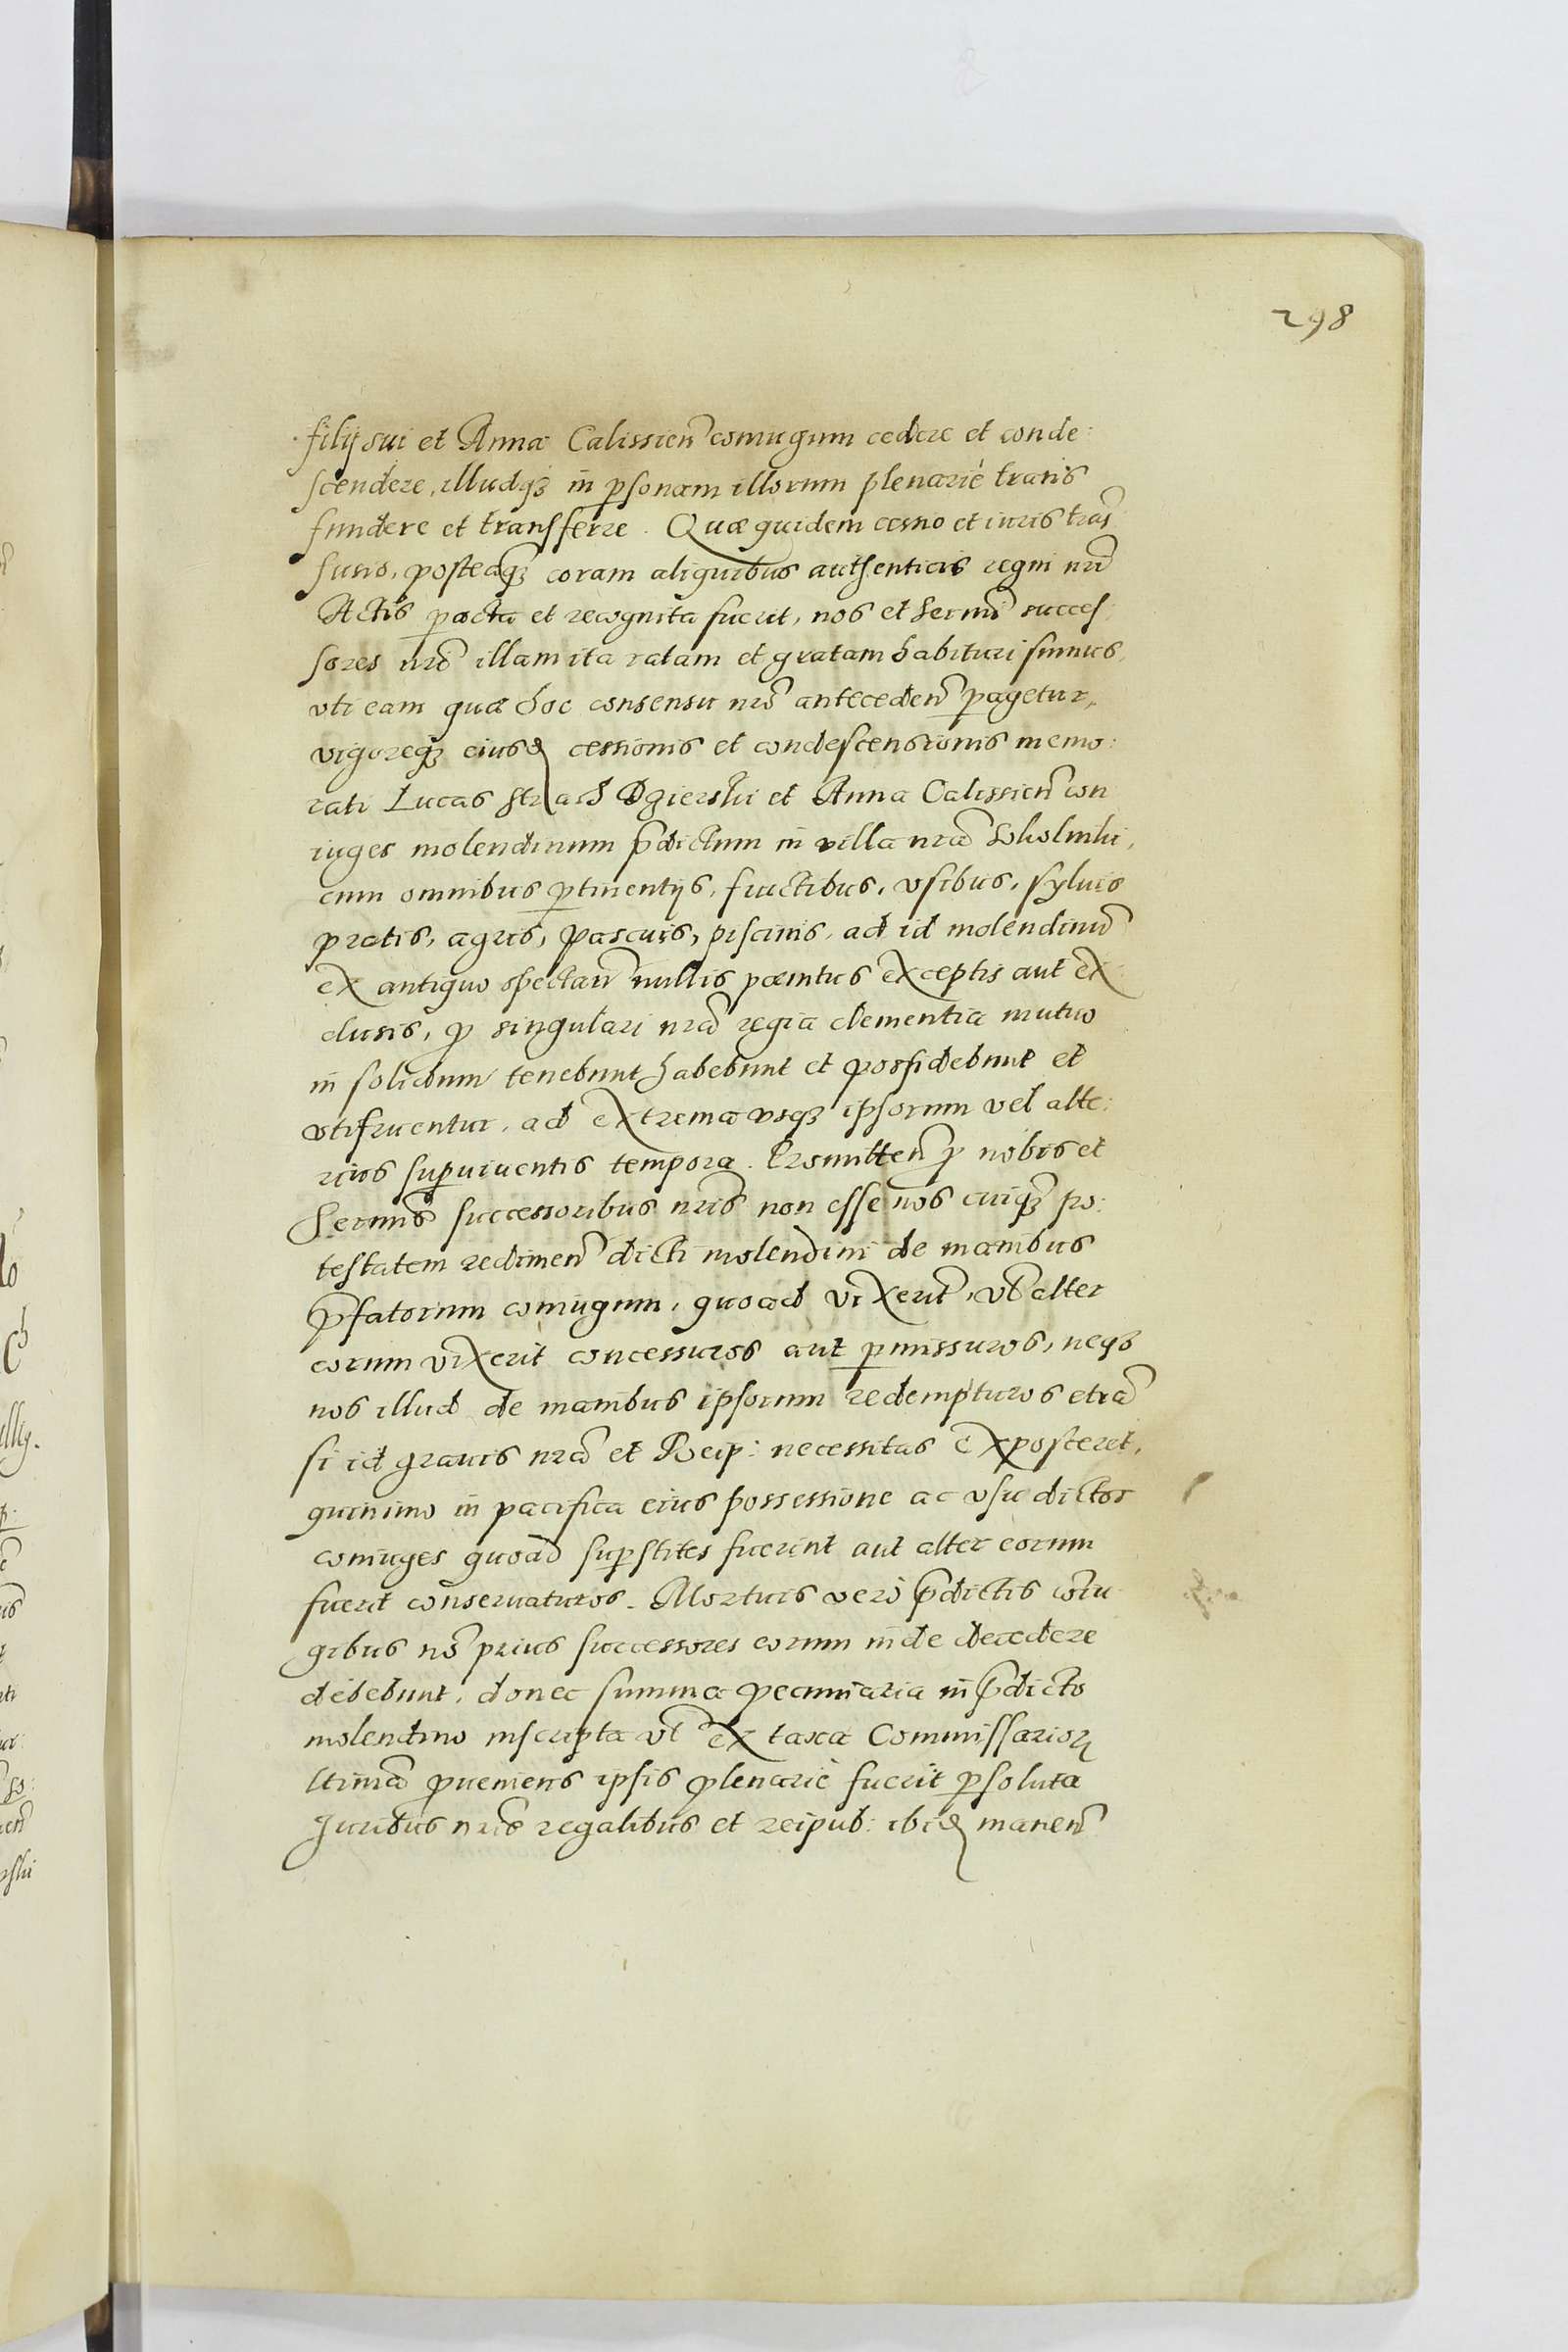 298
filij sui et Annæ Calissien̄ coniugum cedere et conde:
scendere, illudq3 in psonam illorum plenarie trans
fundere et transferre. Quæ quidem cessio et iuris trās:
fusio, posteaq3 coram aliquibus authenticis regni nr̄i
Actis pacta et recognita fuerit, nos et Sermi succes:
sores nrī illam ita ratam et gratam habituri sumus,
vti eam quæ hoc consensu nrō anteceden̄ pagetur,
vigoreq3 eiusd cessionis et condescensionis memo:
rati Lucas et Anna Calissien̄ con
iuges molendinum p̄dictum in villa nrā
cum omnibus ptinentijs, fructibus, vsibus, syluis
pratis, agris, pascuis, piscinis, ad id molendinū
ex antiquo spectan̄ nullis pænitus exceptis aut ex:
clusis, p singulari nrā regia clementia mutuo
in solidum tenebunt habebunt et possidebunt et
vtifruentur, ad extrema vsq3 ipsorum vel alte:
rius supuiuentis tempora. Promitten̄ p nobis et
Sermis successoribus nrīs non esse nos cuiq3 po:
testatem redimen̄ dicti molendini de manibus
p̄fatorum coniugum, quoad vixerit, vl alter
eorum vixerit concessuros aut pmissuros, neq3
nos illud de manibus ipsorum redempturos etiā
si id grauis nrā et Reip: necessitas exposceret,
quinimo in pacifica eius possessione ac vsu dictos
coniuges quoad supstites fuerint aut alter eorum
fuerit conseruaturos. Mortuis vero p̄dictis cōiu
gibus nō prius successores eorum inde decedere
debebunt, donec summa pecuniaria in p̄dicto
molendino inscripta vl ex taxa Commissarior
ltimā pueniens ipsis plenarie fuerit psoluta
Juribus nrīs regalibus et reipub: ibid manen̄